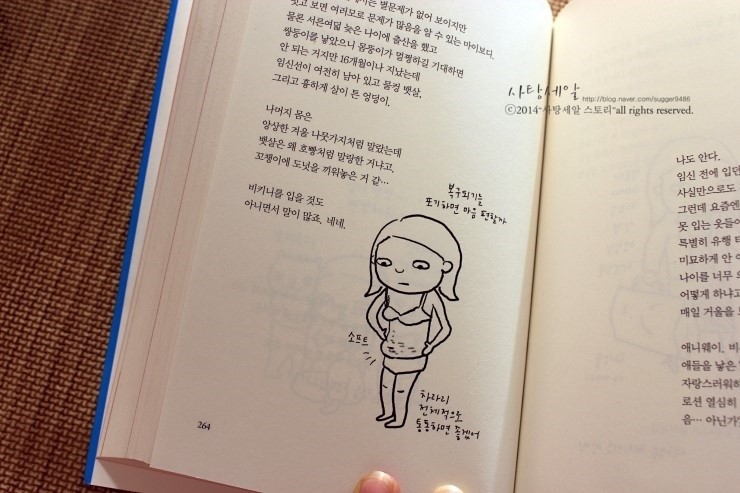 벗고 보면 여러모로 문제가 많음을 알 수 있는 마이보디.
물론 서른여덟 늦은 나이에 출산을 했고
쌍둥이를 낳았으니 몸뚱이가 멀쩡하길 기대하면
안 되는 거지만 16개월이나 지났는데
임신선이 여전히 남아 있고 물컹 뱃살,
그리고 흉하게 살이 튼 엉덩이.
나머지 몸은
앙상한 겨울 나뭇가지처럼 말랐는데
뱃살은 왜 호빵처럼 말랑한 거냐고.
꼬챙이에 도넛을 끼워놓은 거 같…
비키니를 입을 것도
아니면서 말이 많죠. 네네.
복구되기는
포기하면 마음 편할까
소프트
차라리
전체적으로
통통하면 좋겠어
264
사탕세알 http://blog.naver.com/sugger9486
ⓒ2014"사탕세알 스토리"all rights reserved.
나도 안다.
임신 전에 입던
사실만으로도
그런데 요즘엔
못 입는 옷들이
특별히 유행 타
미묘하게 안 어
나이를 너무 의
어떻게 하냐고
매일 거울을 보
애니웨이, 비
애들을 낳은
자랑스러워해
로션 열심히
음… 아닌가?